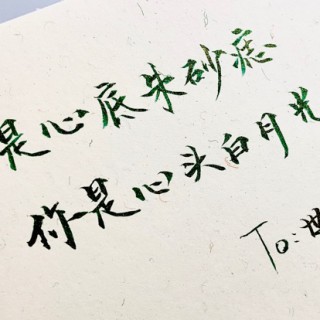 是心底朱砂痣
你是心头白月光
To:世